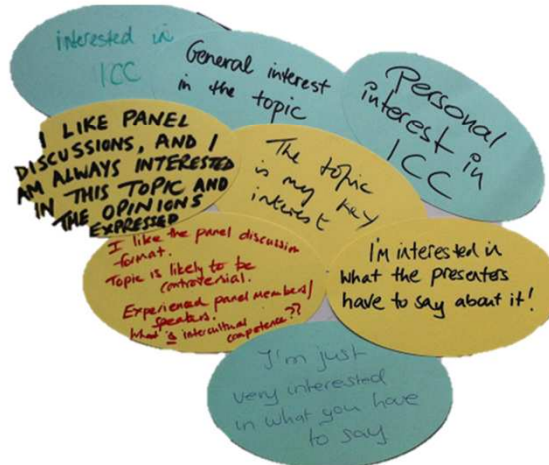 interested in
ICC
General interest
in the topic
Personal
interest in
ICC
I LIKE PANEL
DISCUSSIONS, AND I
AM ALWAYS INTERESTED
IN THIS TOPIC AND
THE OPINIONS
EXPRESSED
The topic
is my key
interest
I like the panel discussion
format.
Topic is likely to be
controversial.
Experienced panel members/
speakers.
What is intercultural competence??
I'm interested in
what the presenters
have to say about it!
I'm just
very interested
in what you have
to say